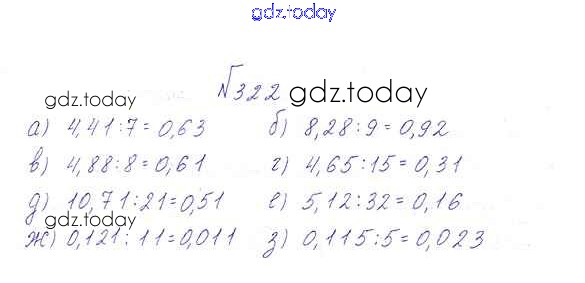 gdz.today
№322
gdz.today gdz.today
а) 4,41:7=0,63 б) 8,28:9=0,92
в) 4,88:8=0,61 г) 4,65:15=0,31
д) 10,71:21=0,51 е) 5,12:32=0,16
gdz.today
ж) 0,121:11=0,011 з) 0,115:5=0,023